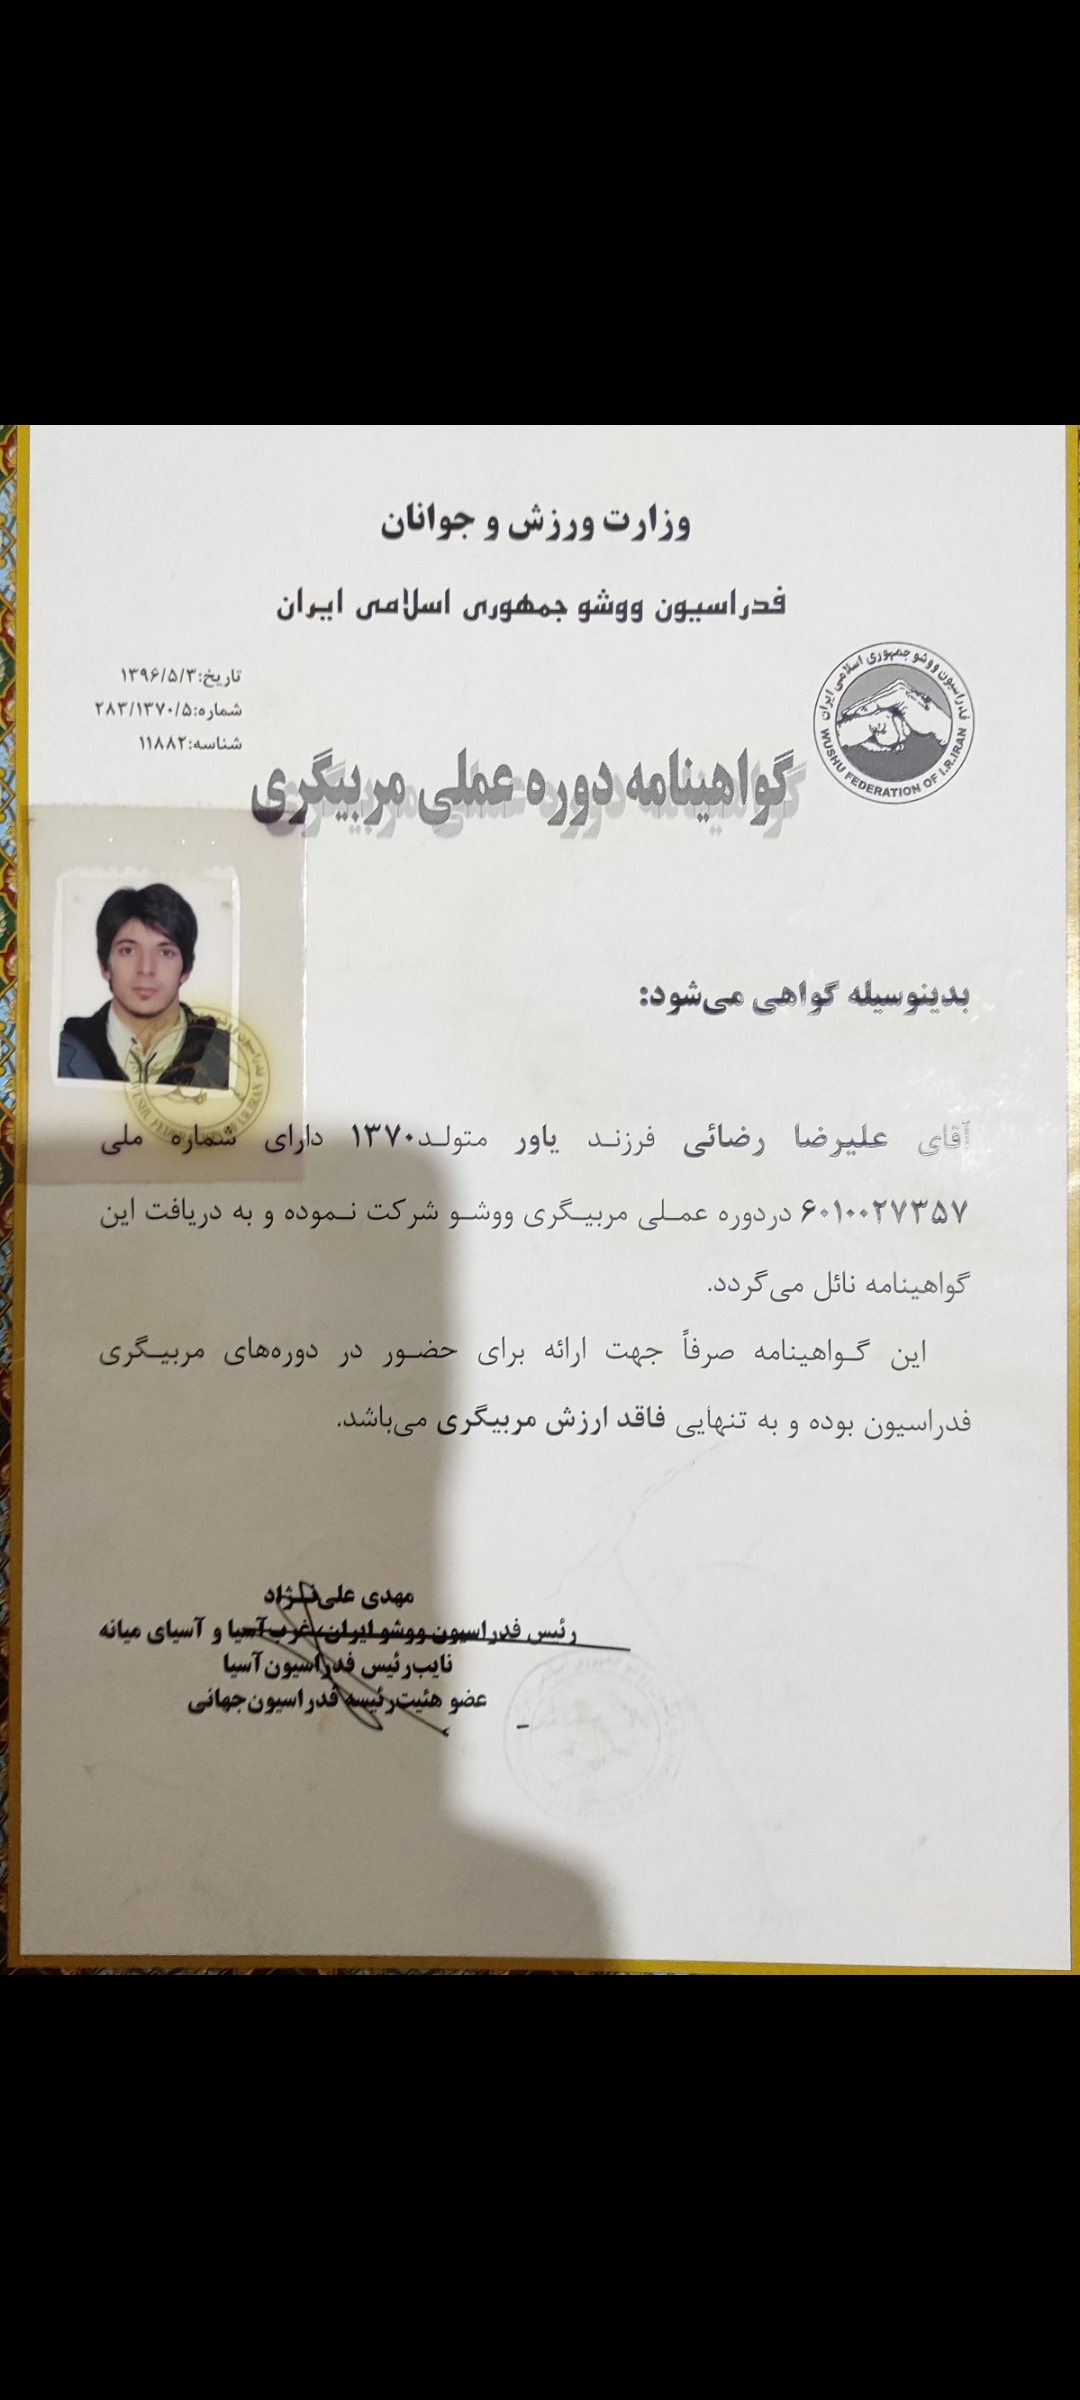 وزارت ورزش و جوانان
فدراسیون ووشو جمهوری اسلامی ایران
فدراسیون ووشو جمهوری اسلامی ایران
WUSHU FEDERATION OF I.R.IRAN
تاریخ:۱۳۹۶/۵/۳
شماره:۲۸۳/۱۳۷۰/۵
شناسه:۱۱۸۸۲
گواهینامه دوره عملی مربیگری
بدینوسیله گواهی می‌شود:
آقای علیرضا رضائی فرزند یاور متولد۱۳۷۰ دارای شماره ملی
۶۰۱۰۰۲۷۳۵۷ دردوره عملی مربیگری ووشو شرکت نموده و به دریافت این
گواهینامه نائل می‌گردد.
این گواهینامه صرفاً جهت ارائه برای حضور در دوره‌های مربیگری
فدراسیون بوده و به تنهایی فاقد ارزش مربیگری می‌باشد.
مهدی علی‌نژاد
رئیس فدراسیون ووشو ایران، غرب آسیا و آسیای میانه
نایب‌رئیس فدراسیون آسیا
عضو هئیت‌رئیسه فدراسیون‌جهانی